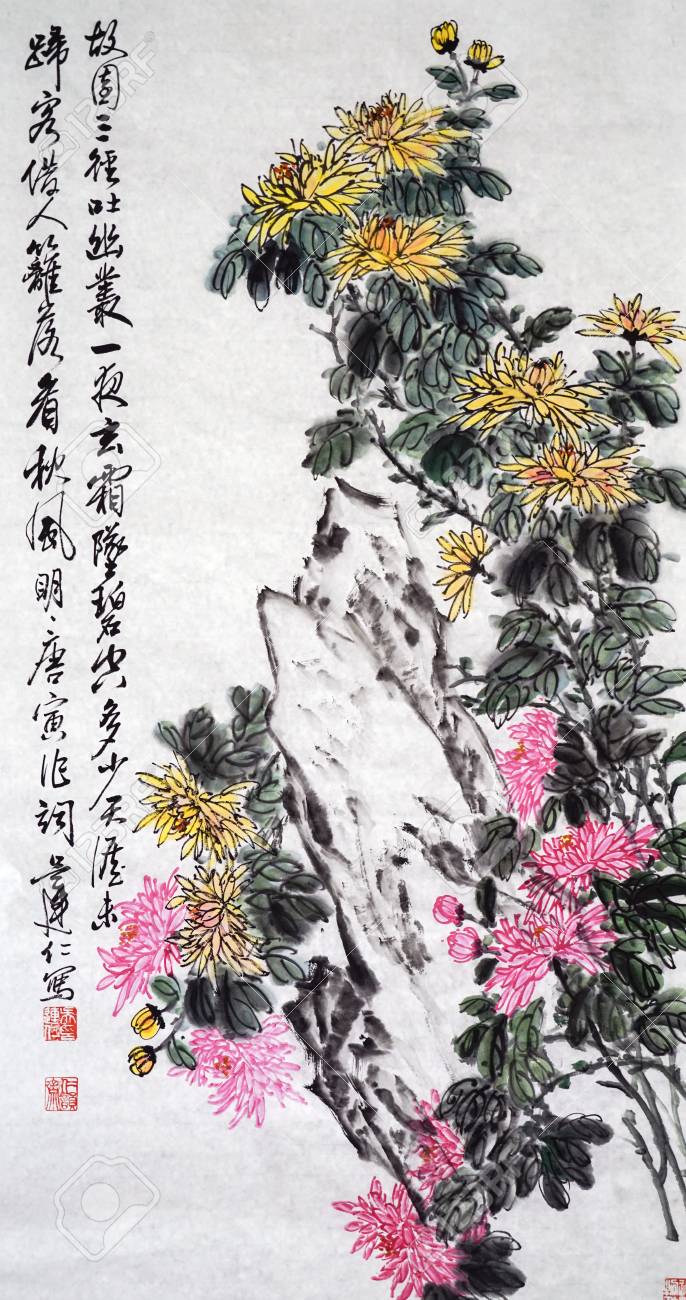 故園三徑吐幽叢一夜玄霜墜碧空多少天涯未
歸客借人籬落看秋風明、唐寅作詞仁寫
123RF